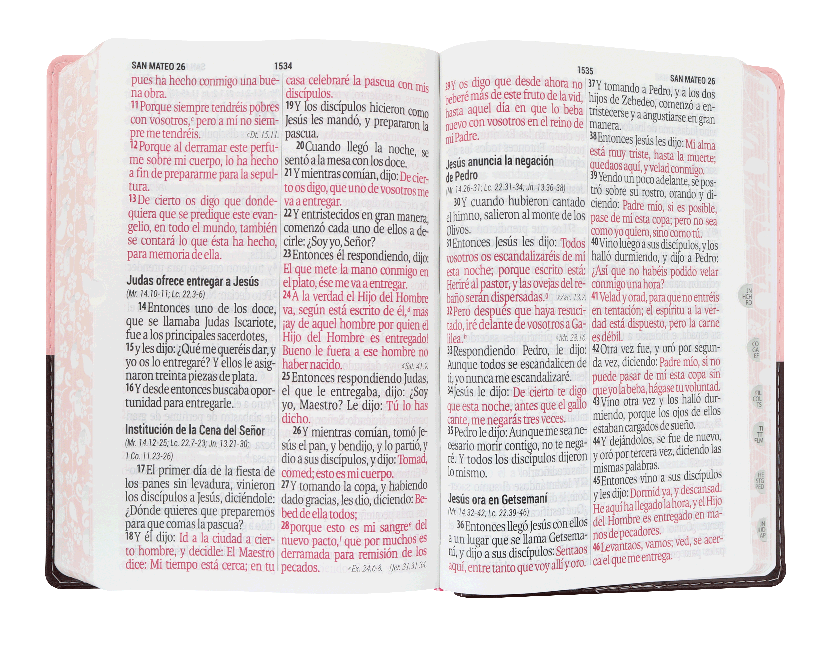 SAN MATEO 26
1534
pues ha hecho conmigo una bue-
na obra.
11Porque siempre tendréis pobres
con vosotros, pero a mí no siem-
pre me tendréis.
12Porque al derramar este perfu-
me sobre mi cuerpo, lo ha hecho
a fin de prepararme para la sepul-
tura.
13De cierto os digo que donde-
quiera que se predique este evan-
gelio, en todo el mundo, también
se contará lo que ésta ha hecho,
para memoria de ella.
Judas ofrece entregar a Jesús
(Mr. 14.10-11; Lc. 22.3-6)
14Entonces uno de los doce,
que se llamaba Judas Iscariote,
fue a los principales sacerdotes,
15y les dijo: ¿Qué me queréis dar, y
yo os lo entregaré? Y ellos le asig-
naron treinta piezas de plata.
16Y desde entonces buscaba opor-
tunidad para entregarle.
Institución de la Cena del Señor
(Mr. 14.12-25; Lc. 22.7-23; Jn. 13.21-30;
1 Co. 11.23-26)
17El primer día de la fiesta de
los panes sin levadura, vinieron
los discípulos a Jesús, diciéndole:
¿Dónde quieres que preparemos
para que comas la pascua?
18Y él dijo: Id a la ciudad a cier-
to hombre, y decidle: El Maestro
dice: Mi tiempo está cerca; en tu
casa celebraré la pascua con mis
discípulos.
19Y los discípulos hicieron como
Jesús les mandó, y prepararon la
pascua.
20Cuando llegó la noche, se
sentó a la mesa con los doce.
21Y mientras comían, dijo: De cier-
to os digo, que uno de vosotros me
va a entregar.
22Y entristecidos en gran manera,
comenzó cada uno de ellos a de-
cirle: ¿Soy yo, Señor?
23Entonces él respondiendo, dijo:
El que mete la mano conmigo en
el plato, ése me va a entregar.
24A la verdad el Hijo del Hombre
va, según está escrito de él, mas
¡ay de aquel hombre por quien el
Hijo del Hombre es entregado!
Bueno le fuera a ese hombre no
haber nacido.
25Entonces respondiendo Judas,
el que le entregaba, dijo: ¿Soy
yo, Maestro? Le dijo: Tú lo has
dicho.
26Y mientras comían, tomó Je-
sús el pan, y bendijo, y lo partió, y
dio a sus discípulos, y dijo: Tomad,
comed; esto es mi cuerpo.
27Y tomando la copa, y habiendo
dado gracias, les dio, diciendo: Be-
bed de ella todos;
28porque esto es mi sangre del
nuevo pacto, que por muchos es
derramada para remisión de los
pecados.
1535
SAN MATEO 26
29Y os digo que desde ahora no
beberé más de este fruto de la vid,
hasta aquel día en que lo beba
nuevo con vosotros en el reino de
mi Padre.
Jesús anuncia la negación
de Pedro
(Mr. 14.26-31; Lc. 22.31-34; Jn. 13.36-38)
30Y cuando hubieron cantado
el himno, salieron al monte de los
Olivos.
31Entonces Jesús les dijo: Todos
vosotros os escandalizaréis de mí
esta noche; porque escrito está:
Heriré al pastor, y las ovejas del re-
baño serán dispersadas.
32Pero después que haya resuci-
tado, iré delante de vosotros a Ga-
lilea.
33Respondiendo Pedro, le dijo:
Aunque todos se escandalicen de
ti, yo nunca me escandalizaré.
34Jesús le dijo: De cierto te digo
que esta noche, antes que el gallo
cante, me negarás tres veces.
35Pedro le dijo: Aunque me sea ne-
cesario morir contigo, no te nega-
ré. Y todos los discípulos dijeron
lo mismo.
Jesús ora en Getsemaní
(Mr. 14.32-42; Lc. 22.39-46)
36Entonces llegó Jesús con ellos
a un lugar que se llama Getsema-
ní, y dijo a sus discípulos: Sentaos
aquí, entre tanto que voy allí y oro.
37Y tomando a Pedro, y a los dos
hijos de Zebedeo, comenzó a en-
tristecerse y a angustiarse en gran
manera.
38Entonces Jesús les dijo: Mi alma
está muy triste, hasta la muerte;
quedaos aquí, y velad conmigo.
39Yendo un poco adelante, se pos-
tró sobre su rostro, orando y di-
ciendo: Padre mío, si es posible,
pase de mí esta copa; pero no sea
como yo quiero, sino como tú.
40Vino luego a sus discípulos, y los
halló durmiendo, y dijo a Pedro:
¿Así que no habéis podido velar
conmigo una hora?
41Velad y orad, para que no entréis
en tentación; el espíritu a la ver-
dad está dispuesto, pero la carne
es débil.
42Otra vez fue, y oró por segun-
da vez, diciendo: Padre mío, si no
puede pasar de mí esta copa sin
que yo la beba, hágase tu voluntad.
43Vino otra vez y los halló dur-
miendo, porque los ojos de ellos
estaban cargados de sueño.
44Y dejándolos, se fue de nuevo,
y oró por tercera vez, diciendo las
mismas palabras.
45Entonces vino a sus discípulos
y les dijo: Dormid ya, y descansad.
He aquí ha llegado la hora, y el Hijo
del Hombre es entregado en ma-
nos de pecadores.
46Levantaos, vamos; ved, se acer-
ca el que me entrega.